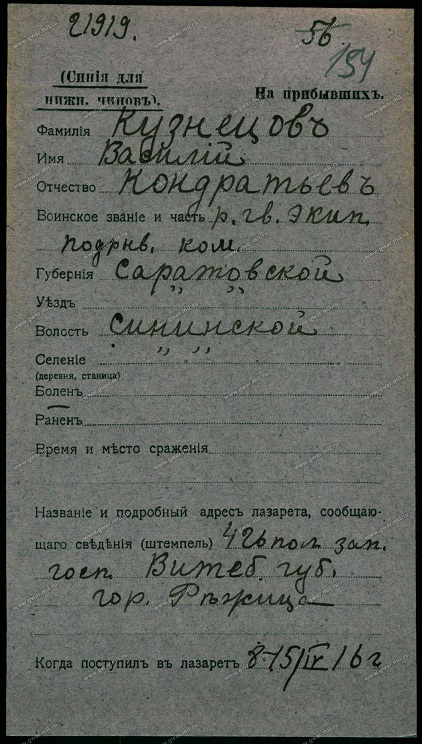 21919. 56
154
(Синія для
нижн. чиновъ). На прибывшихъ.
Фамилія Кузнецовъ
Имя Василій
Отчество Кондратьевъ
Воинское званіе и часть р. гв. экип.
подрывн. ком.
Губернія Саратовской
Уѣздъ " "
Волость Сининской
Селеніе " "
(деревня, станица)
Боленъ
Раненъ
Время и мѣсто сраженія
Названіе и подробный адресъ лазарета, сообщаю-
щаго свѣдѣнія (штемпель) 426 пол. зап.
госп. Витеб. губ.
гор. Рѣжица
Когда поступилъ въ лазаретъ 8-15/IV 16 г